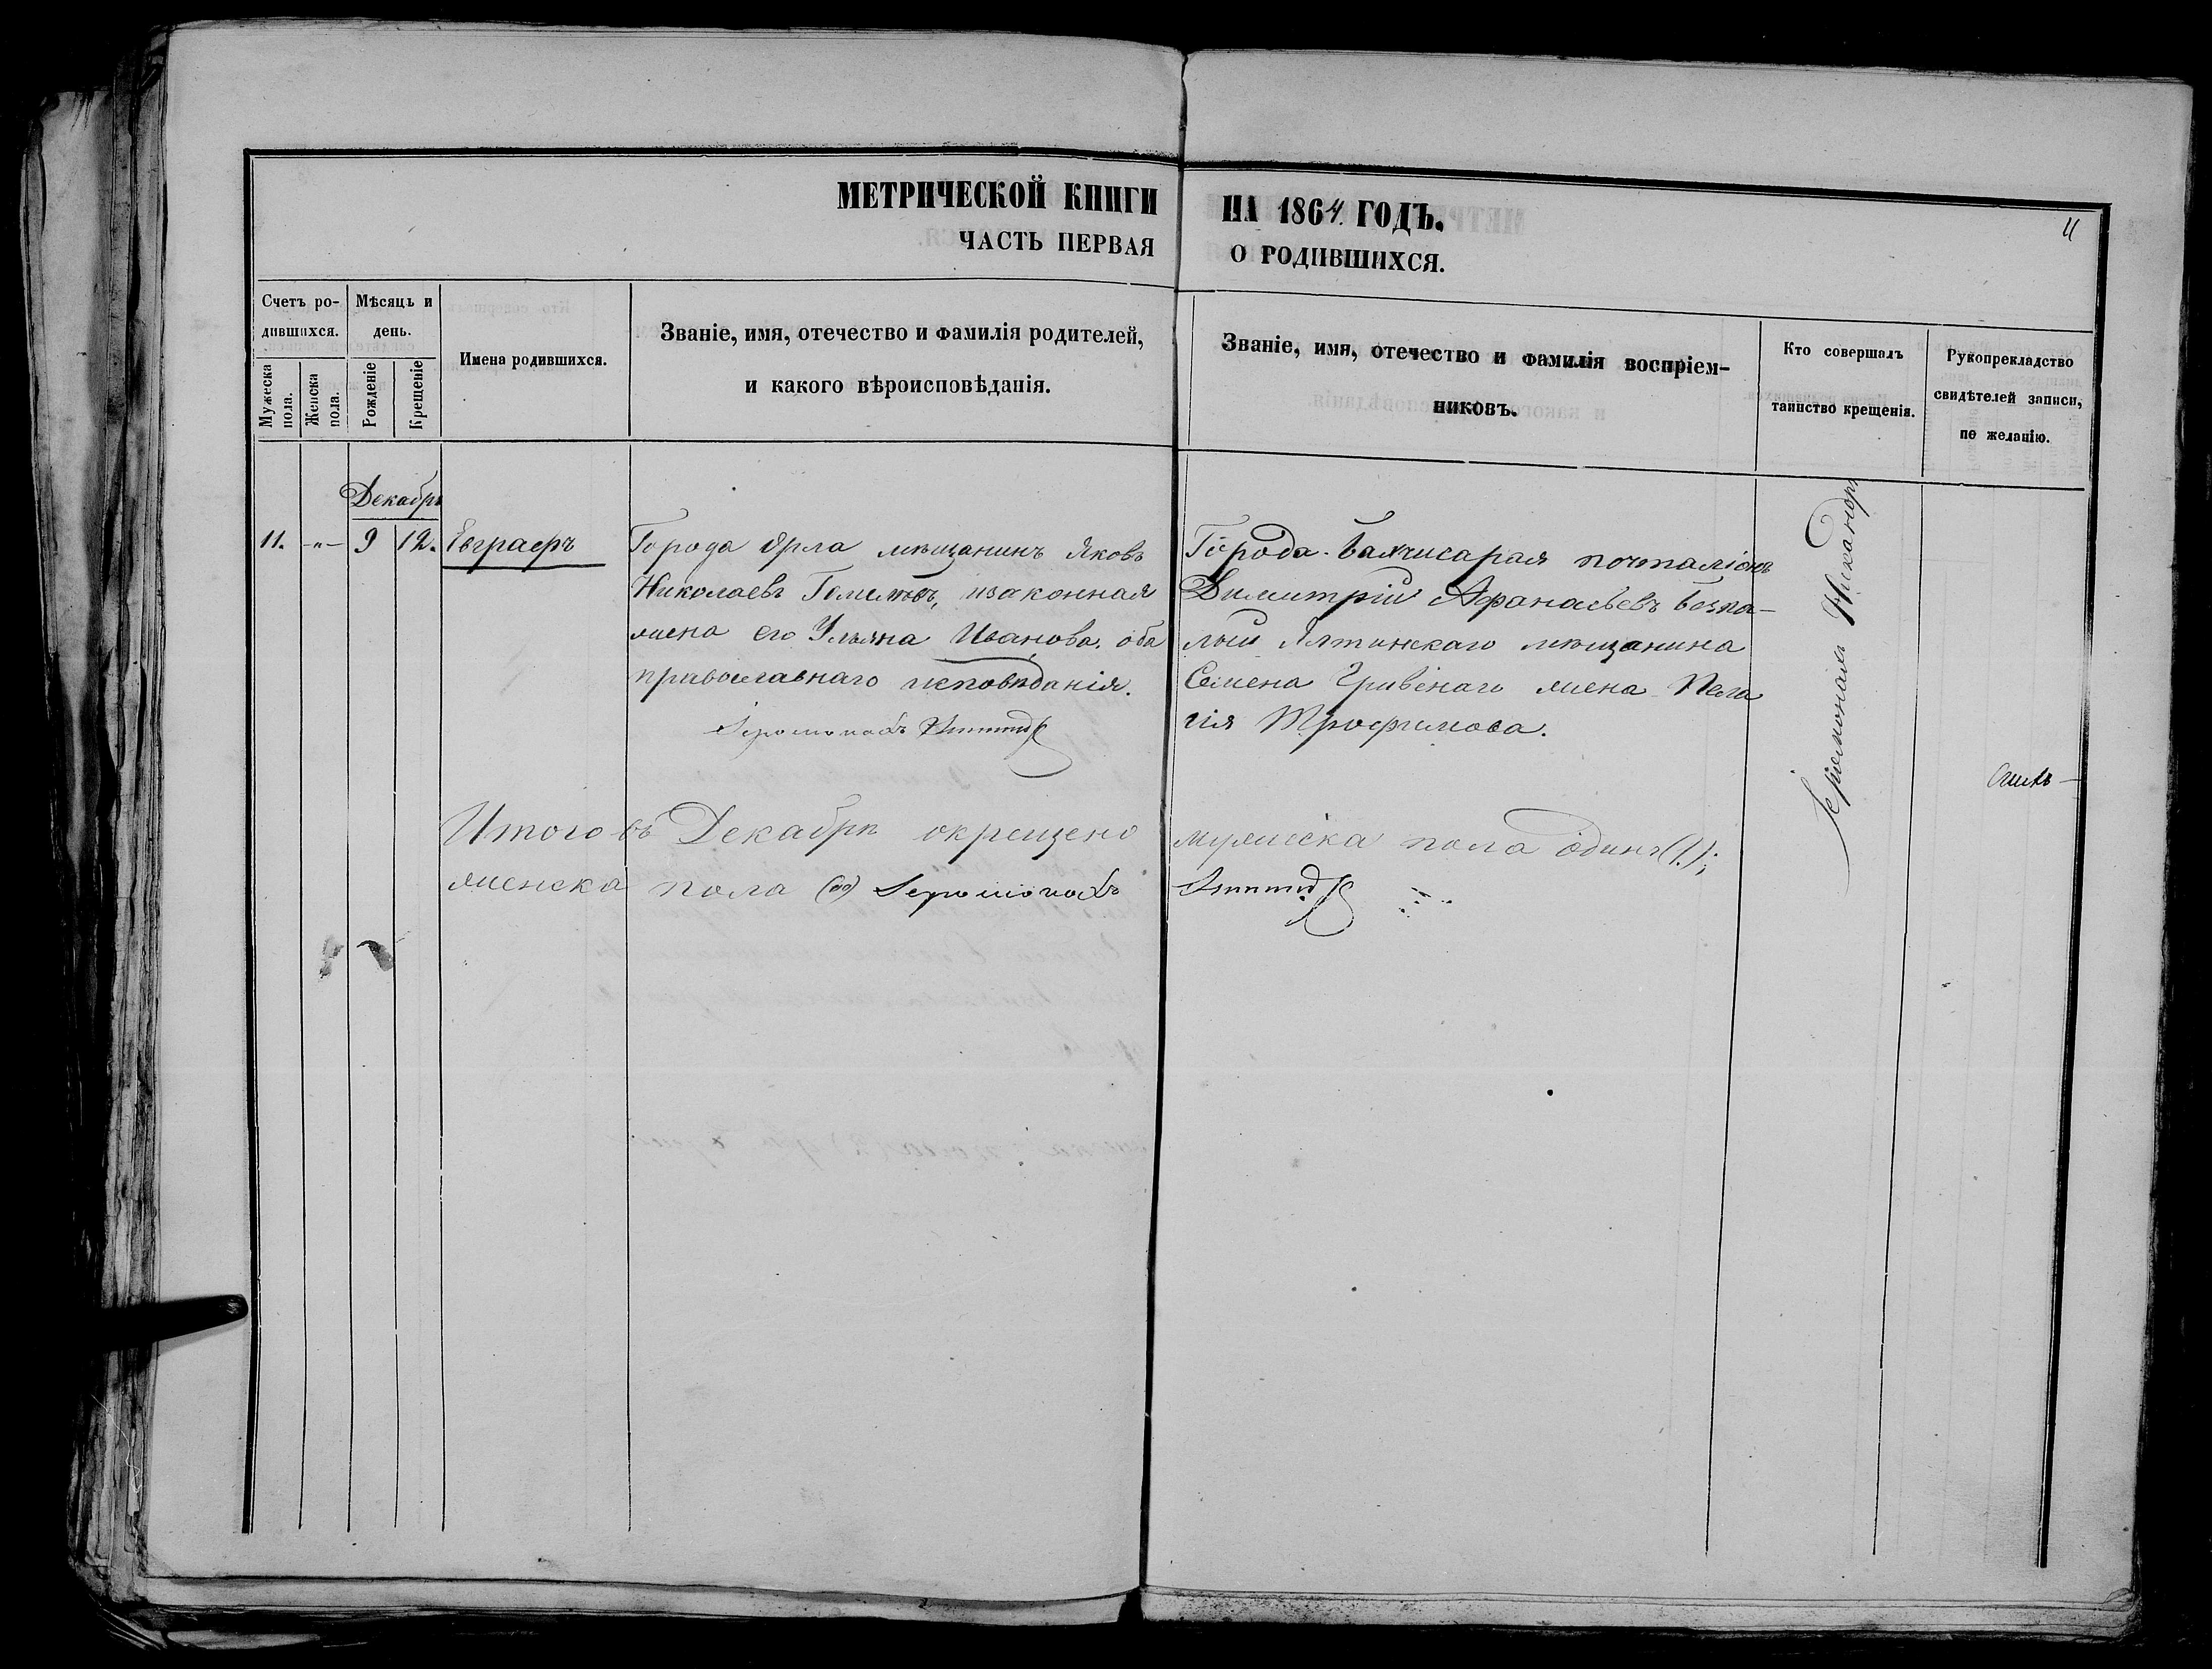 МЕТРИЧЕСКОЙ КНИГИ НА 1864. ГОДЪ.
11
ЧАСТЬ ПЕРВАЯ О РОДИВШИХСЯ.
Счетъ родившихся.
Мужеска пола.
Женска пола.
Мѣсяцъ и день.
Рожденіе
Крещеніе
Имена родившихся.
Званіе, имя, отечество и фамилія родителей,
и какого вѣроисповѣданія.
Званіе, имя, отечество и фамилія воспріем-
никовъ.
Кто совершалъ
таинство крещенія.
Рукоприкладство
свидѣтелей записи,
по желанію.
Декабрь
11. -"- 9 12. Евграфъ
Города Орла мѣщанинъ Яковъ
Николаевъ изаконная
жена его Ульяна Иванова. оба
православнаго исповѣданія.
Іеромонахъ
Города Бахчисарая почталіонъ
Димитрій Афанасьевъ Безпа-
лый Ялтинскаго мѣщанина
Семена Гривенаго жена Пела
гія Трофимова.
Іеромонахъ Никаноръ
Итого въ Декабрѣ окрещено мужеска пола одинъ (1.);
женска пола Іеромонахъ